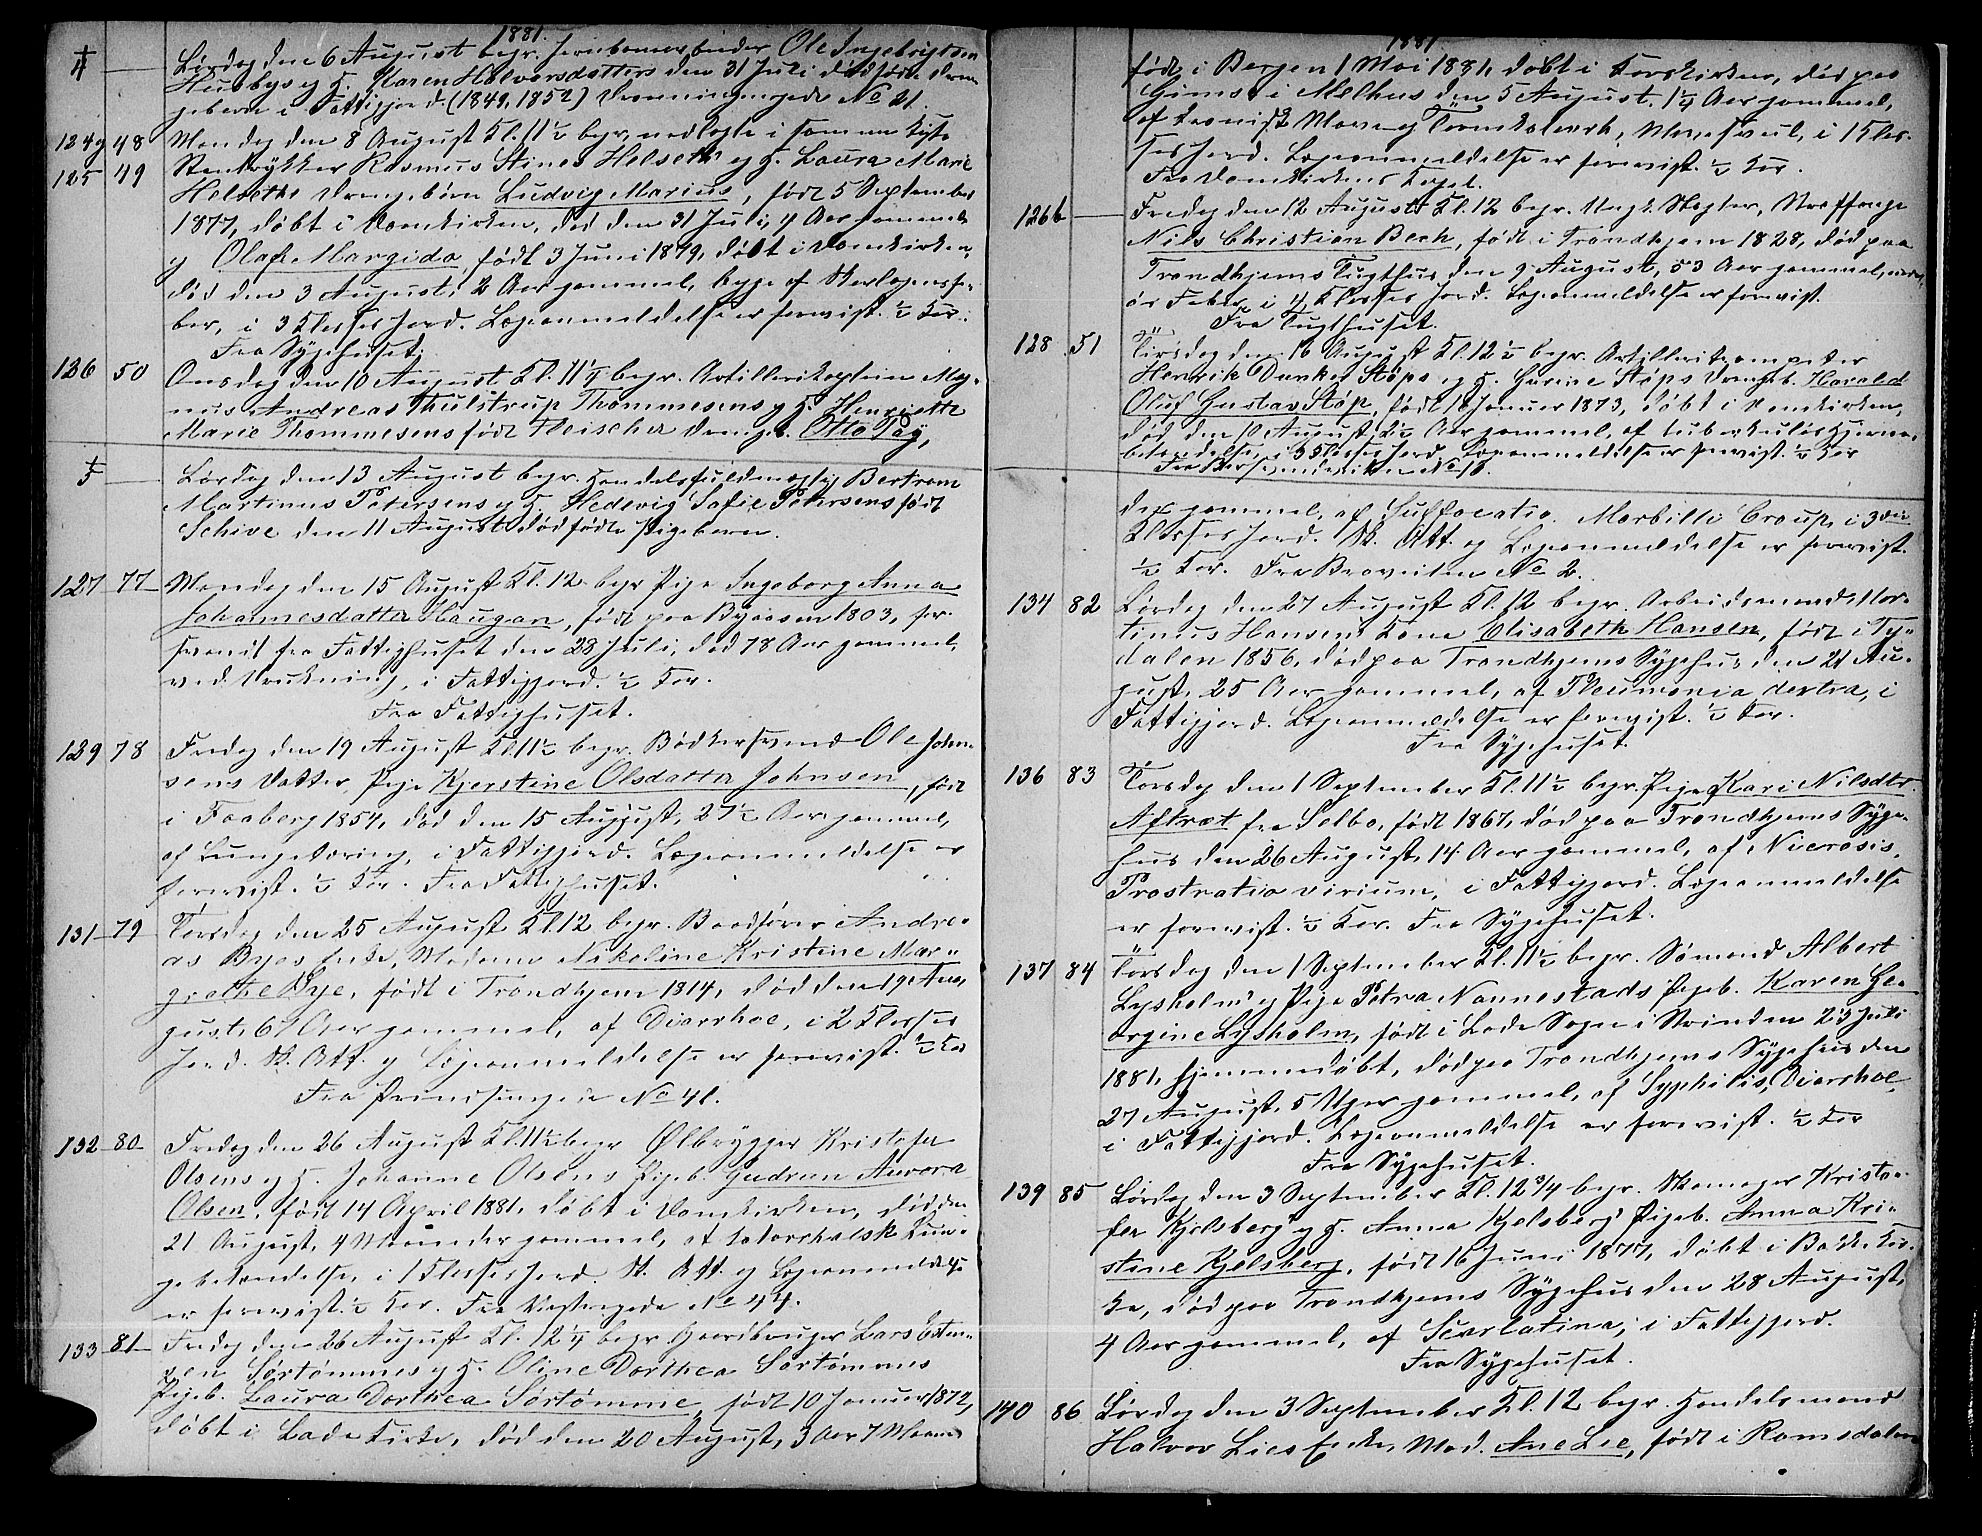 1881.
4 Lørdag den 6 August begr. Jernbanearbeider Ole Ingebrigtsen
Husbys og H. Maren Halvorsdatters den 31 Juli dødfødte Drenge-
gebarn i Fattigjord. (1849, 1852) Dronningensgade No 21.
124 og 48 Mandag den 8 August Kl. 11½ begr. nedlagte i samme Kiste
125 49 Stentrykker Rasmus Stines Helseths og H. Laura Marie
Helseths Drengebørn Ludvig Marius, født 5 September
1877, døbt i Domkirken, død den 31 Juli, 4 Aar gammel
og Olaf Margido, født 3 Juni 1879, døbt i Domkirken,
død den 3 August, 2 Aar gammel, begge af Skarlagensfe-
ber, i 3 Klasses Jord. Lægeanmeldelse er forevist. ½ Kor.
Fra Sygehuset.
126 50 Onsdag den 10 August Kl. 11¼ begr. Artillerikaptein Mag-
nus Andreas Thulstrup Thommesens og H. Henriette
Marie Thommesens født Fleischer Drengeb. Otto Tay,
5 Lørdag den 13 August begr. Handelsfuldmægtig Bertram
Martinus Petersens og H. Hedevig Sofie Petersens født
Schive den 11 August dødfødte Pigebarn.
127 77 Mandag den 15 August Kl. 12 begr. Pige Ingeborg Anna
Johannesdatter Haugan, født paa Byaasen 1803, for-
svandt fra Fattighuset den 28 Juli, død 78 Aar gammel,
ved Drukning, i Fattigjord. ½ Kor.
Fra Fattighuset.
129 78 Fredag den 19 August Kl. 11½ begr. Bødkersvend Ole John-
sens Datter Pige Kjerstine Olsdatter Johnsen, født
i Faaberg 1854, død den 15 August, 27½ Aar gammel,
af Lungetæring, i Fattigjord. Lægeanmeldelse er
forevist. ½ Kor. Fra Fattighuset.
131 79 Torsdag den 25 August Kl. 12 begr. Baadfører Andre-
as Byes Enke, Madame Nikoline Kristine Mar-
grethe Bye, født i Trondhjem 1814, død den 19 Au-
gust, 67 Aar gammel, af Diarrhoe, i 2 Klasses
Jord. Sk. Att. og Lægeanmeldelse er forevist. ½ Kor
Fra Prindsensgade No 41.
132 80 Fredag den 26 August Kl. 11½ begr. Ølbrygger Kristofer
Olsens og H. Johanne Olsens Pigeb. Gudrun Aurora
Olsen, født 14 April 1881, døbt i Domkirken, død den
21 August, 4 Maaneder gammel, af katarrhalsk Lun-
gebetændelse, i 1 Klasses Jord. Sk. Att. og Lægeanmeldelse
er forevist. ½ Kor. Fra Vestregade No 44.
133 81 Fredag den 26 August Kl. 12¼ begr. Gaardbruger Lars Esten-
sen Sørtømmes og H. Oline Dorthea Sørtømmes
Pigeb. Laura Dorthea Sørtømme, født 10 Januar 1872,
døbt i Lade Kirke, død den 20 August, 3 Aar 7 Maane-
1881
født i Bergen 1 Mai 1881, døbt i Korskirken, død paa
Gimse i Melhus den 5 August, 1¼ Aar gammel,
af kronisk Mave og Tarmkatarrh, i 1 Klas-
ses Jord. Lægeanmeldelse er forevist. ½ Kor.
Fra Domkirkens Kapel.
126b Fredag den 12 August Kl. 12 begr. Ungk. Slagter, Straffange
Nils Christian Bech, født i Trondhjem 1828, død paa
Trondhjems Tugthus den 9 August, 53 Aar gammel, af nerv-
øs Feber, i 4 Klasses Jord. Lægeanmeldelse er forevist.
Fra Tugthuset.
128 51 Tirsdag den 16 August Kl. 12½ begr. Artilleritrompeter
Henrik Dunker Støps og H. Gurine Støps Drengeb. Harald
Oluf Gustav Støp, født 1 Januar 1873, døbt i Domkirken,
død den 10 August, Aar gammel, af tuberkuløs Hjerne-
betændelse, i 3 Klasses Jord. Lægeanmeldelse er forevist. ½ Kor
der gammel, af Suffocatio. Morbilli Croup, i 3die
Klasses Jord. Sk. Att. og Lægeanmeldelse er forevist.
½ Kor. Fra Braveiten No 2.
134 82 Lørdag den 27 August Kl. 12 begr. Arbeidsmand Mar-
tinus Hansens Kone Elisabeth Hansen, født i Ty-
dalen 1856, død paa Trondhjems Sygehus den 21 Au-
gust, 25 Aar gammel, af Pneumonia dextra, i
Fattigjord. Lægeanmeldelse er forevist. ½ Kor.
Fra Sygehuset.
136 83 Torsdag den 1 September Kl. 11½ begr. Pige Kari Nilsdtr.
Aftræt fra Selbo, født 1867, død paa Trondhjems Syge-
hus den 26 August, 14 Aar gammel, af Nicrosis,
Prostratio virium, i Fattigjord. Lægeanmeldelse
er forevist. ½ Kor. Fra Sygehuset.
137 84 Torsdag den 1 September Kl. 11½ begr. Sømand Albert
Lysholms og Pige Petra Nannestads Pigeb. Karen Ge-
orgine Lysholm, født i Lade Sogn i Strinden 23 Juli
1881, hjemmedøbt, død paa Trondhjems Sygehus den
27 August, 5 Uger gammel, af Syphilis, Diarrhoe,
i Fattigjord. Lægeanmeldelse er forevist. ½ Kor
Fra Sygehuset.
139 85 Lørdag den 3 September Kl. 12¾ begr. Skomager Kristo-
fer Kjelsbergs og H. Anna Kjelsbergs Pigeb. Anna Kri-
stine Kjelsberg, født 16 Juni 1877, døbt i Bakke Kir-
ke, død paa Trondhjems Sygehus den 28 August,
4 Aar gammel, af Scarlatina, i Fattigjord.
Fra Sygehuset.
140 86 Lørdag den 3 September Kl. 12 begr. Handelsmand
Halvor Lies Enke, Mad. Ane Lie, født i Romsdalen